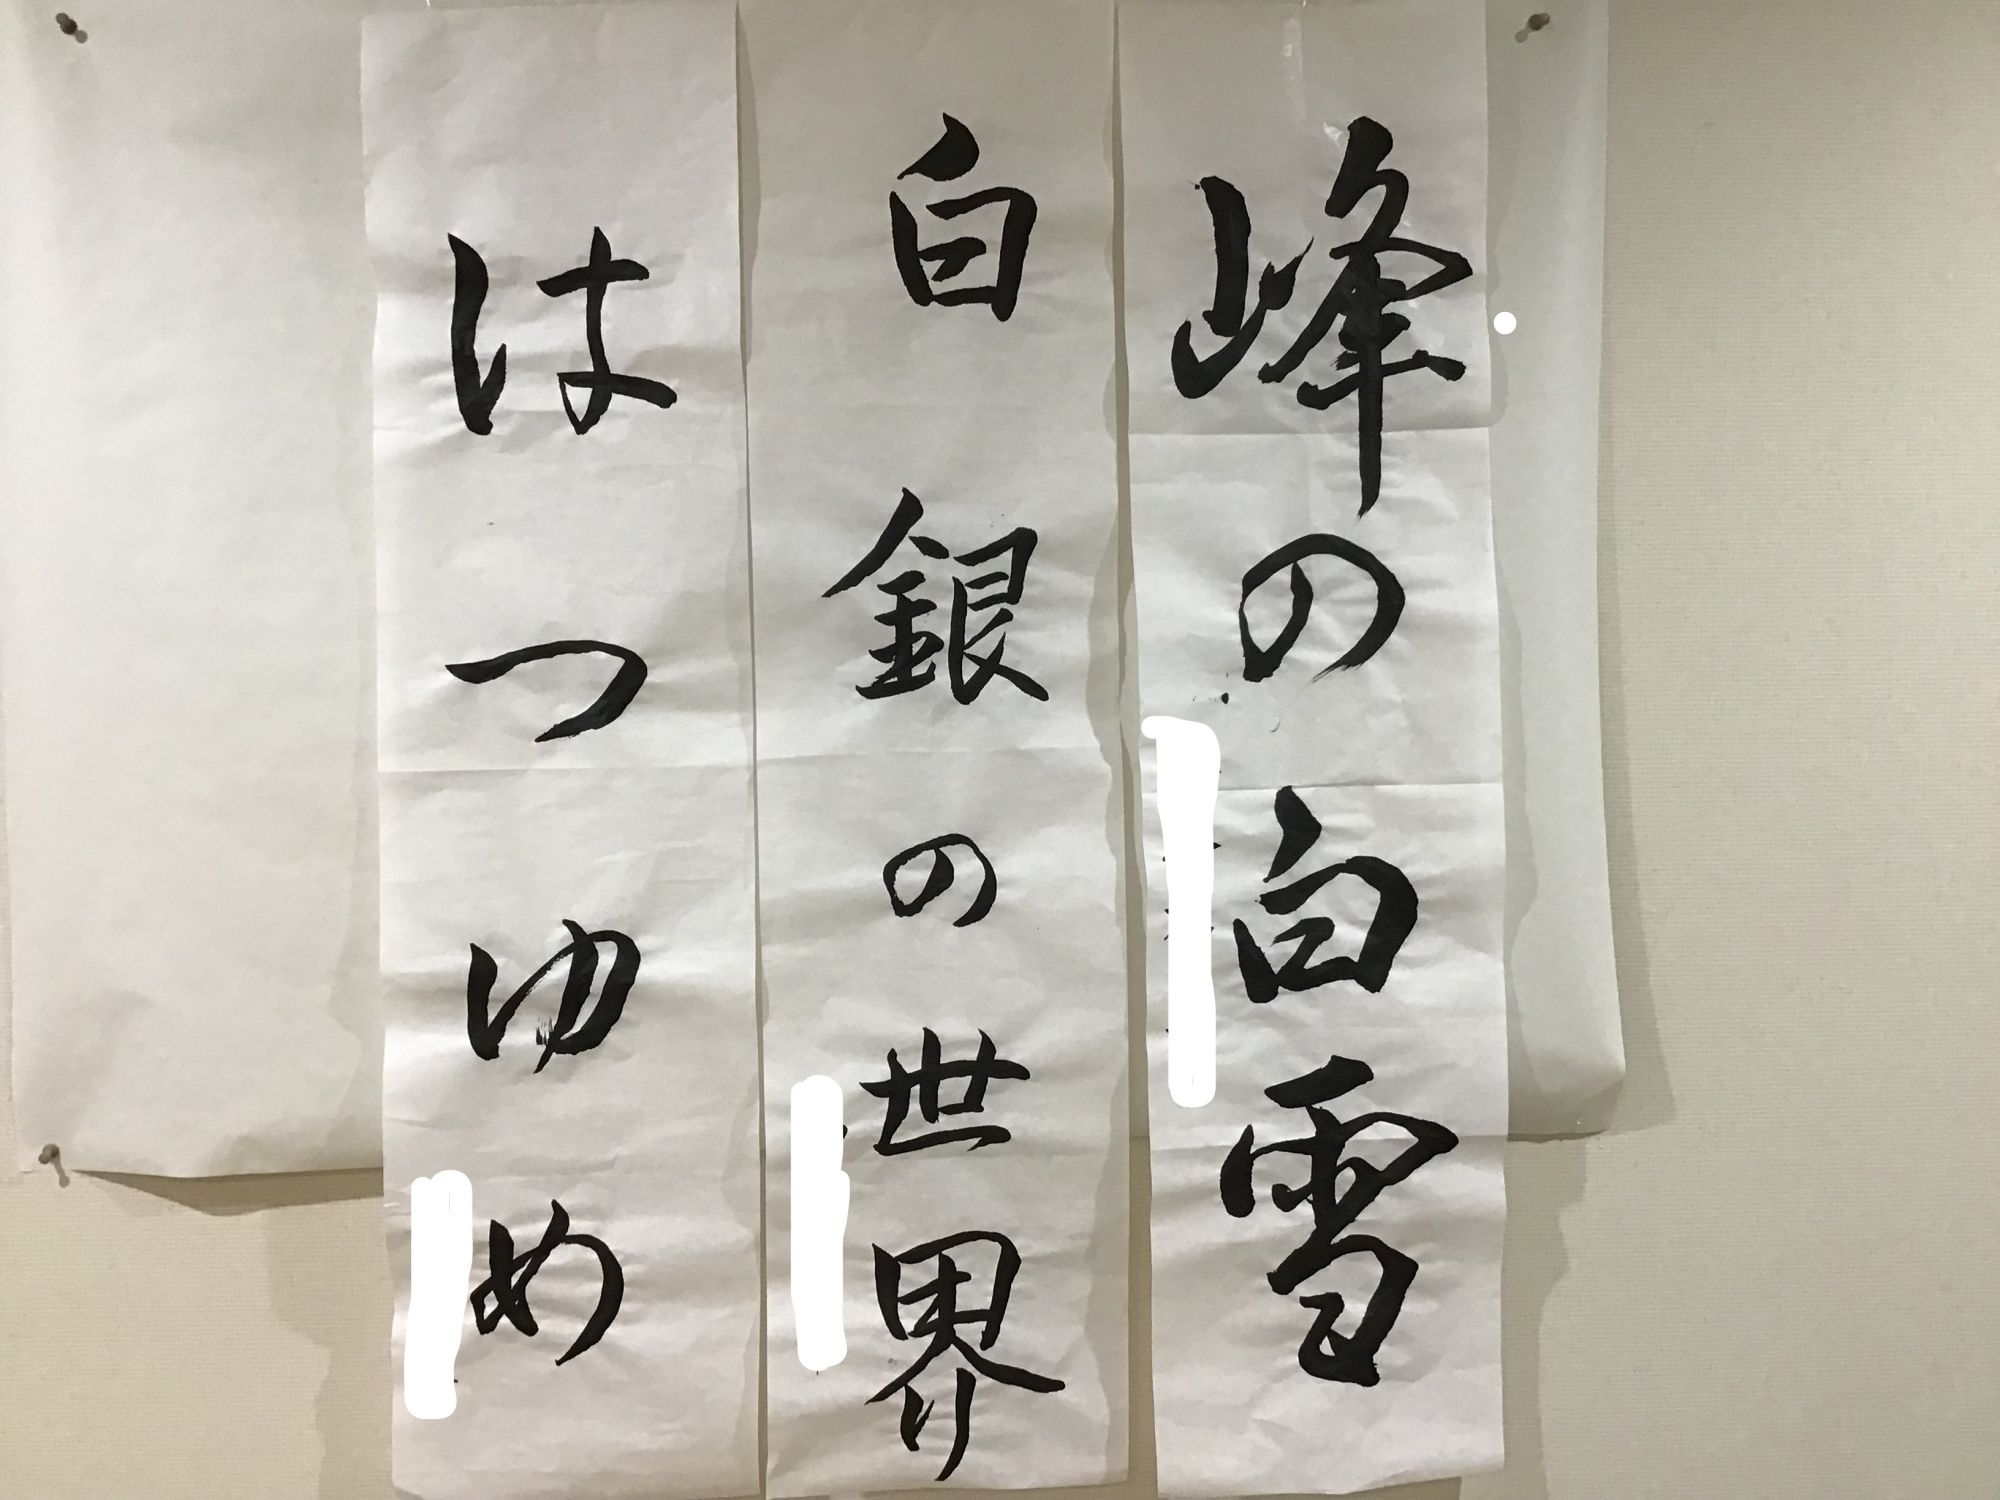 峰の白雪
白銀の世界
はつゆめ